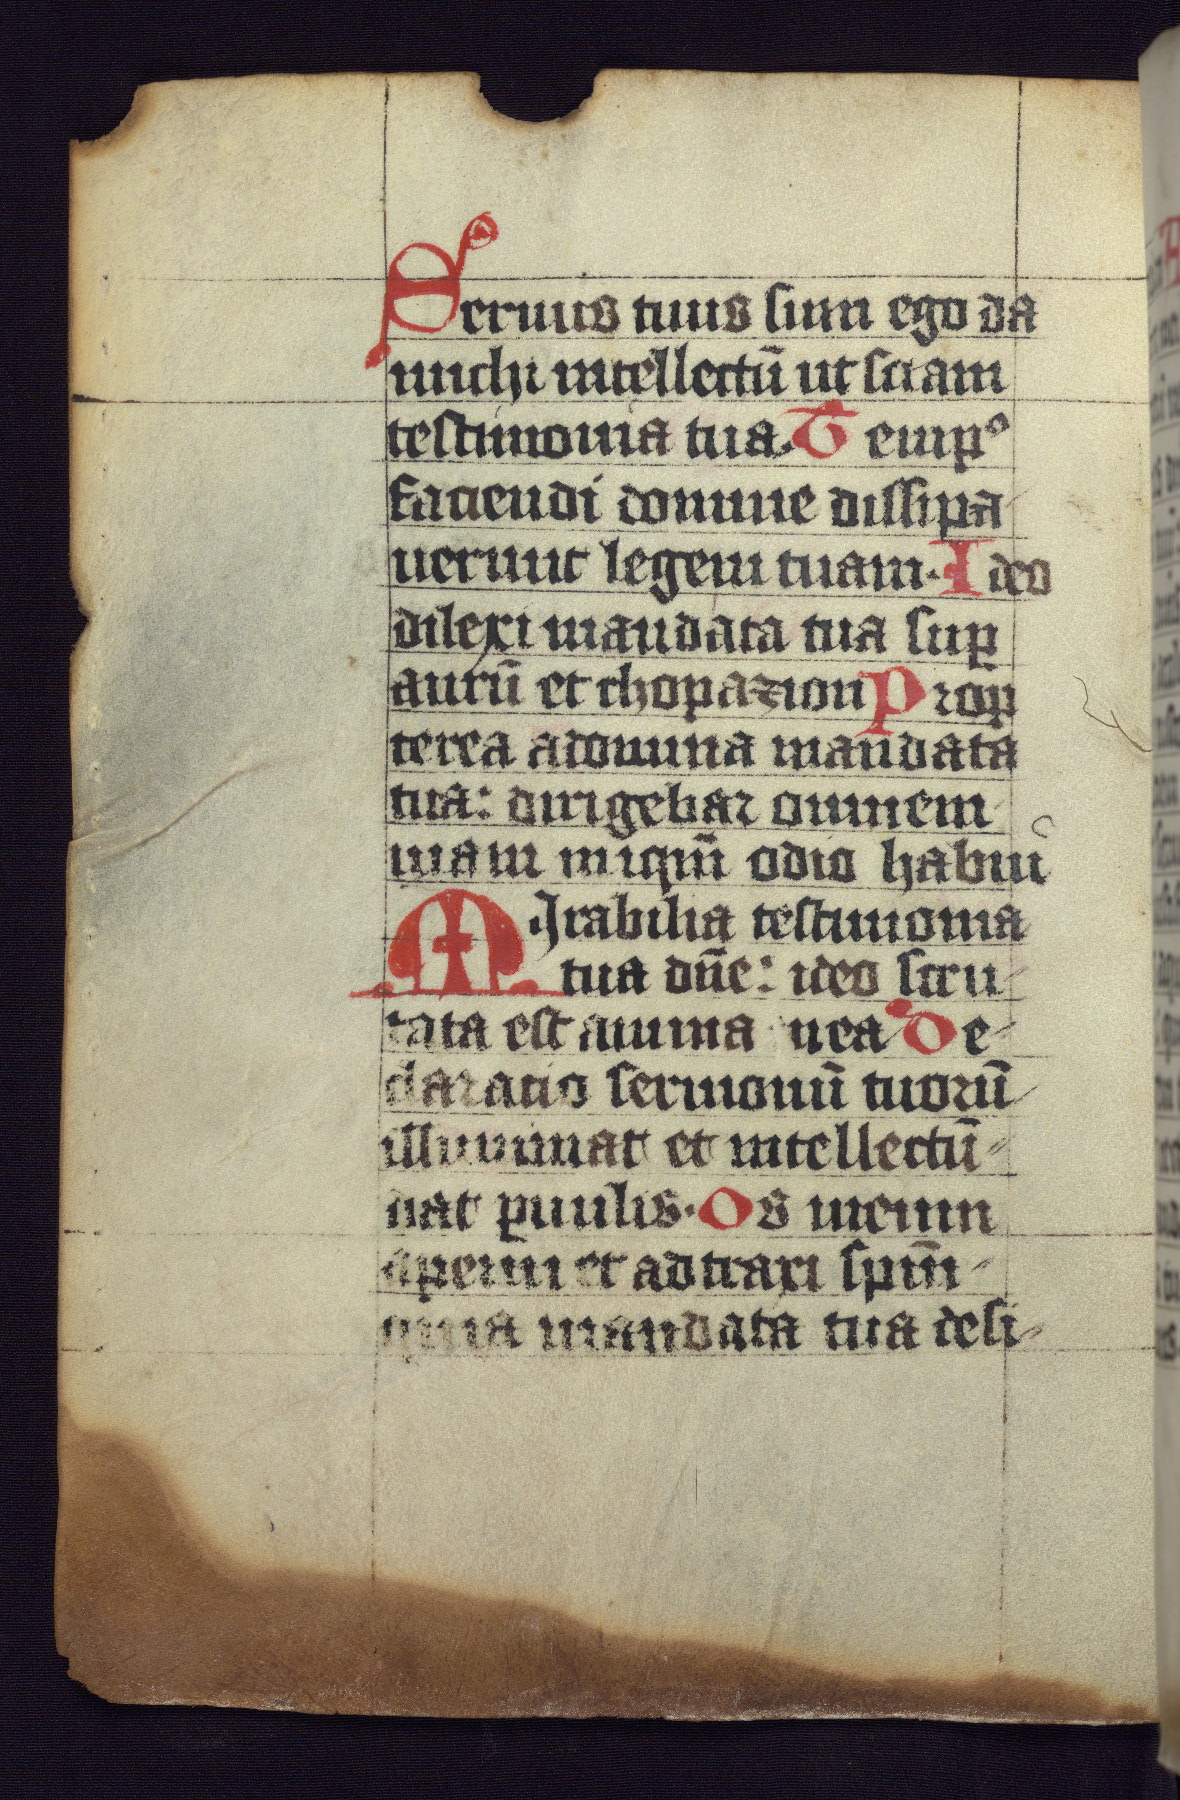 Seruus tuus sum ego da
michi intellectū ut sciam
testimonia tua. Tempꝰ
faciendi domine dissipa
uerunt legem tuam. Ideo
dilexi mandata tua suꝑ
aurū et thopazion Prop
terea adomnia mandata
tua: dirigebar omnem
uiam iniqm̄ odio habui
MIrabilia testimonia
tua dn̄e: ideo scru
tata est anima mea De
claratio sermonū tuorū
illuminat et intellectū
dat ꝑuulis. Os meum
aperui et adtraxi spm̄
quia mandata tua desi